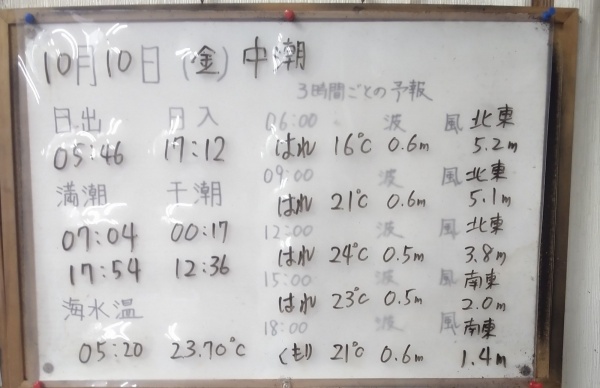 10月10日 (金) 中潮
日出 日入
05:46 17:12
満潮 干潮
07:04 00:17
17:54 12:36
海水温
05:20 23.70℃
3時間ごとの予報
06:00 波 風 北東
はれ 16℃ 0.6m 5.2m
09:00 波 風 北東
はれ 21℃ 0.6m 5.1m
12:00 波 風 北東
はれ 24℃ 0.5m 3.8m
15:00 波 風 南東
はれ 23℃ 0.5m 2.0m
18:00 波 風 南東
くもり 21℃ 0.6m 1.4m